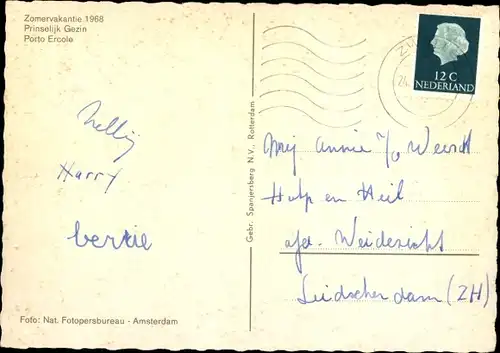 Zomervakantie 1968
Prinselijk Gezin
Porto Ercole
12 C
NEDERLAND
Nelly
Harry
bertie
Gebr. Spanjersberg N.V., Rotterdam
Mej Annie v/d
Hulp en Heil
afd. Weidezicht
Leidschendam (ZH)
Foto: Nat. Fotopersbureau - Amsterdam